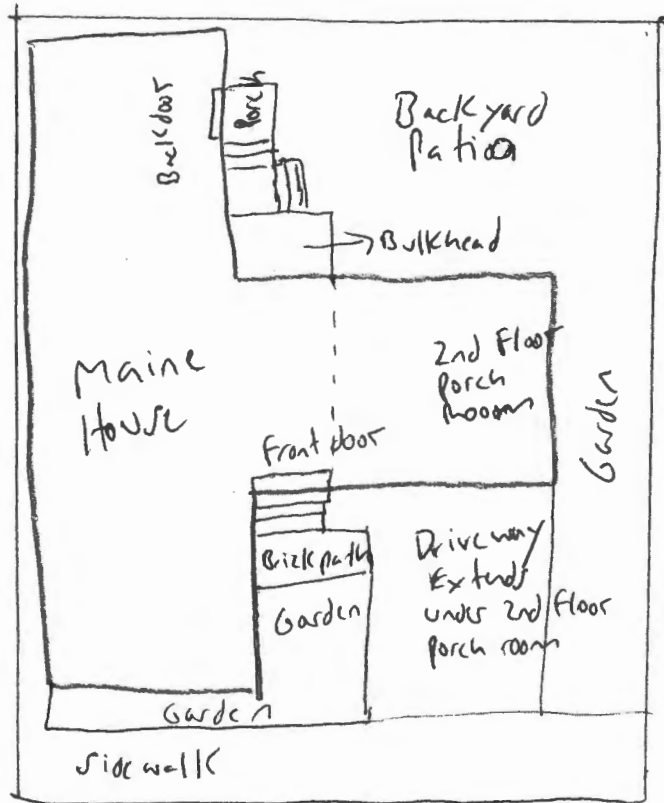 Backdoor
Porch
Backyard
Patioa
Bulkhead
Maine
House
2nd Floor
Porch
Rooom
Garden
Front door
Brick path
Garden
Driveway
Extends
under 2nd Floor
porch room
Garden
Sidewalk